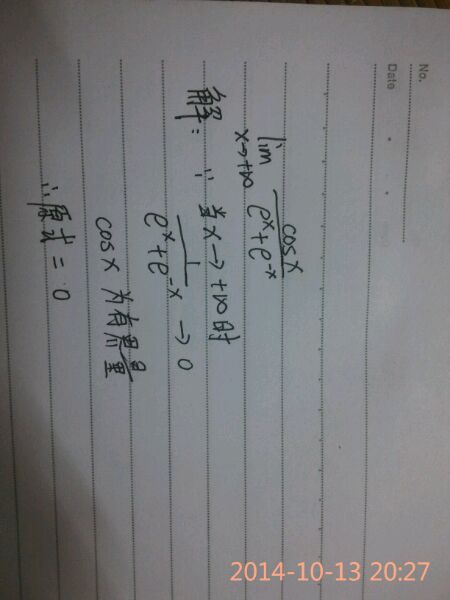 No.
Date
lim x→+∞ cosx / (e^x + e^-x)
解: ∵ 当x→+∞时
1 / (e^x + e^-x) → 0
cosx 为有界量
∴原式 = 0
2014-10-13 20:27